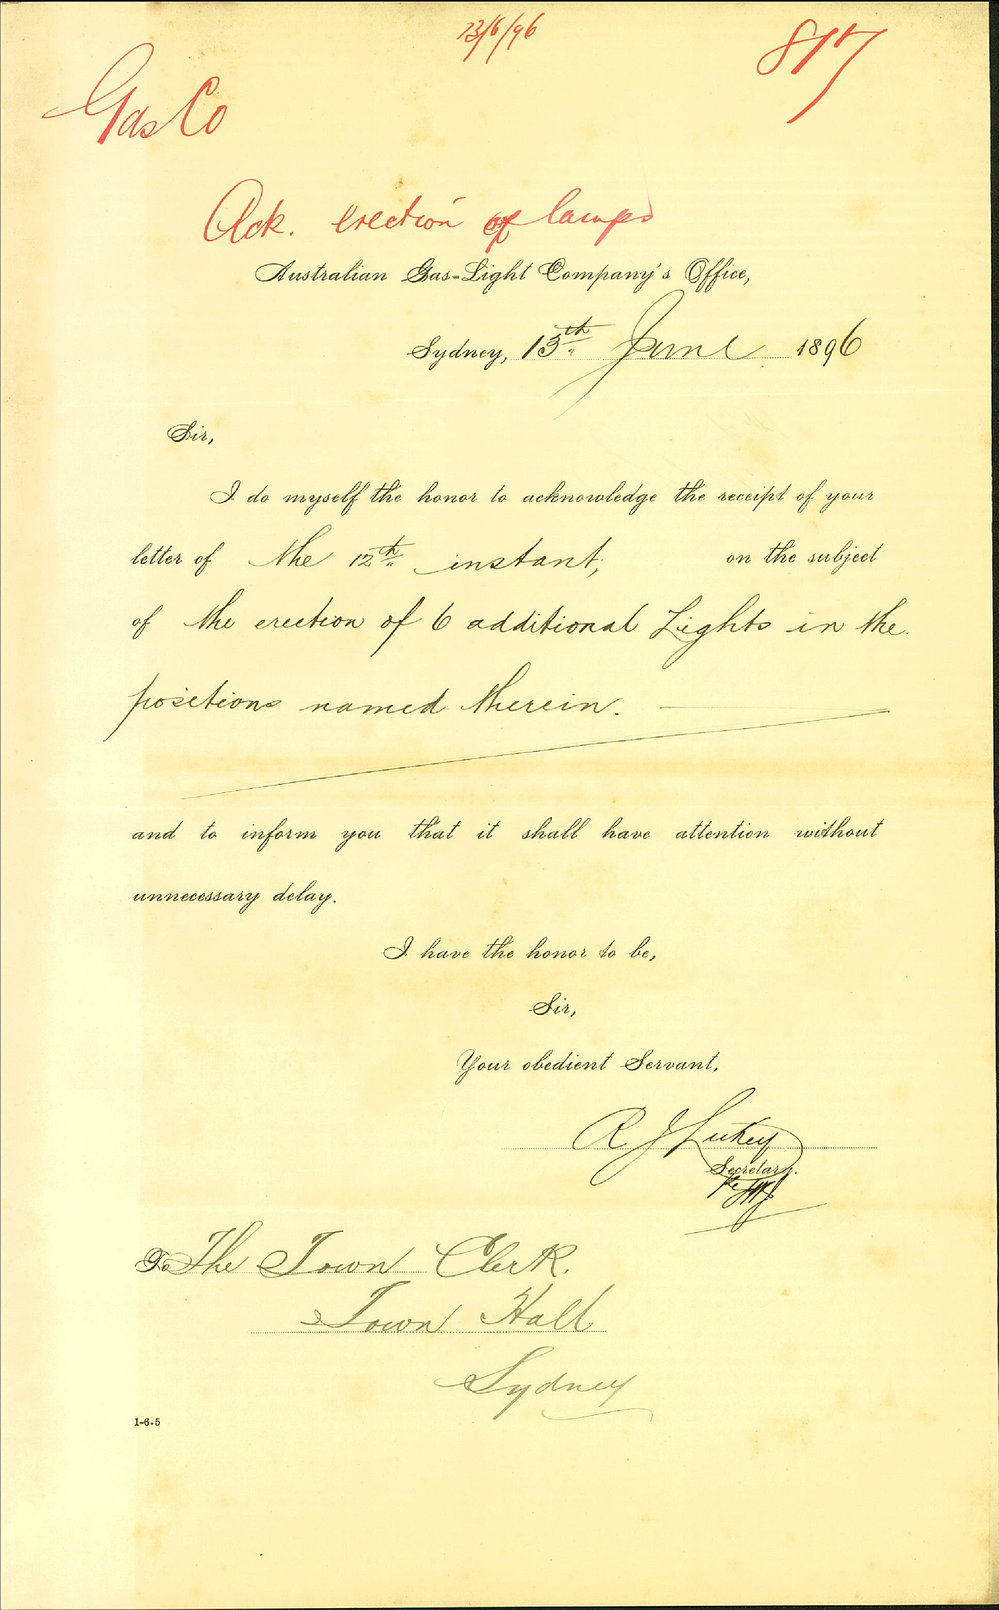 13/6/96
817
Gas Co
Ack. erection of lamps
Australian Gas-Light Company's Office,
Sydney, 13th June 1896
Sir,
I do myself the honor to acknowledge the receipt of your
letter of the 12th instant, on the subject
of the erection of 6 additional Lights in the
positions named therein.
and to inform you that it shall have attention without
unnecessary delay.
I have the honor to be,
Sir,
Your obedient Servant,
R J Lukey
Secretary.
To The Town Clerk.
Town Hall
Sydney
1-6-5